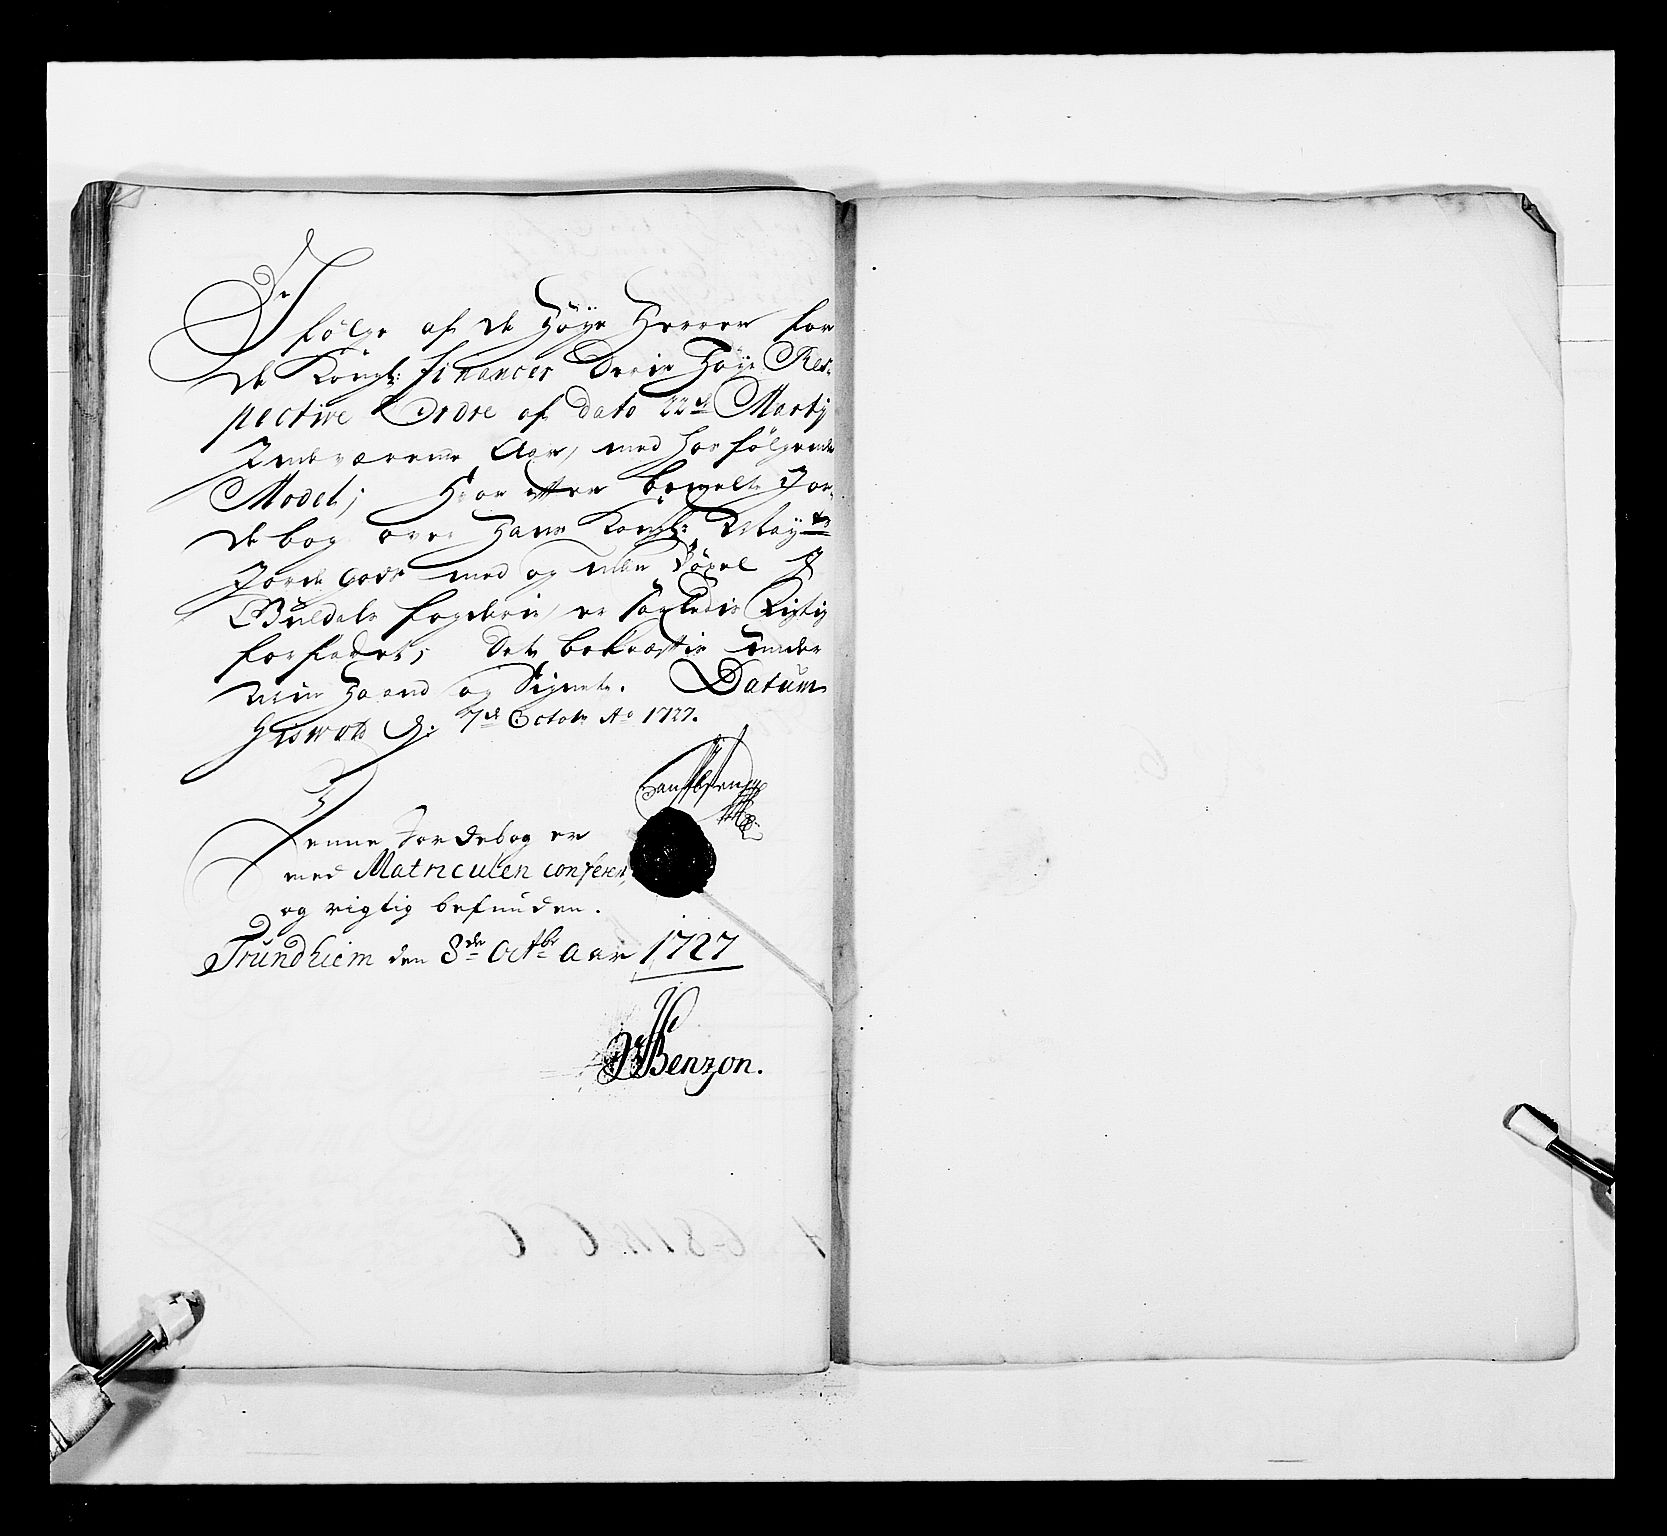 I
følge af de Høye Herrer for
de Kongl: finances Deris Høye Res-
pective Ordre af dato 22de Marty
Indeværende Aar, med hosfølgende
Model; Hvor efter bemelte Jor-
debog over Hans Kongl: Mayts
Jorde Godts med og uden Bøxel I
Guldals fogderie, er saaledis Rigtig
forfattet; Det bekræftis under
Min Haand og Signete. Datum
d: 7de Octobr Ao 1727.
Denne Jordebog er
med Matriculen conferert,
og rigtig befunden.
Trundhiem den 8de Octbr Aar 1727
Benzon.